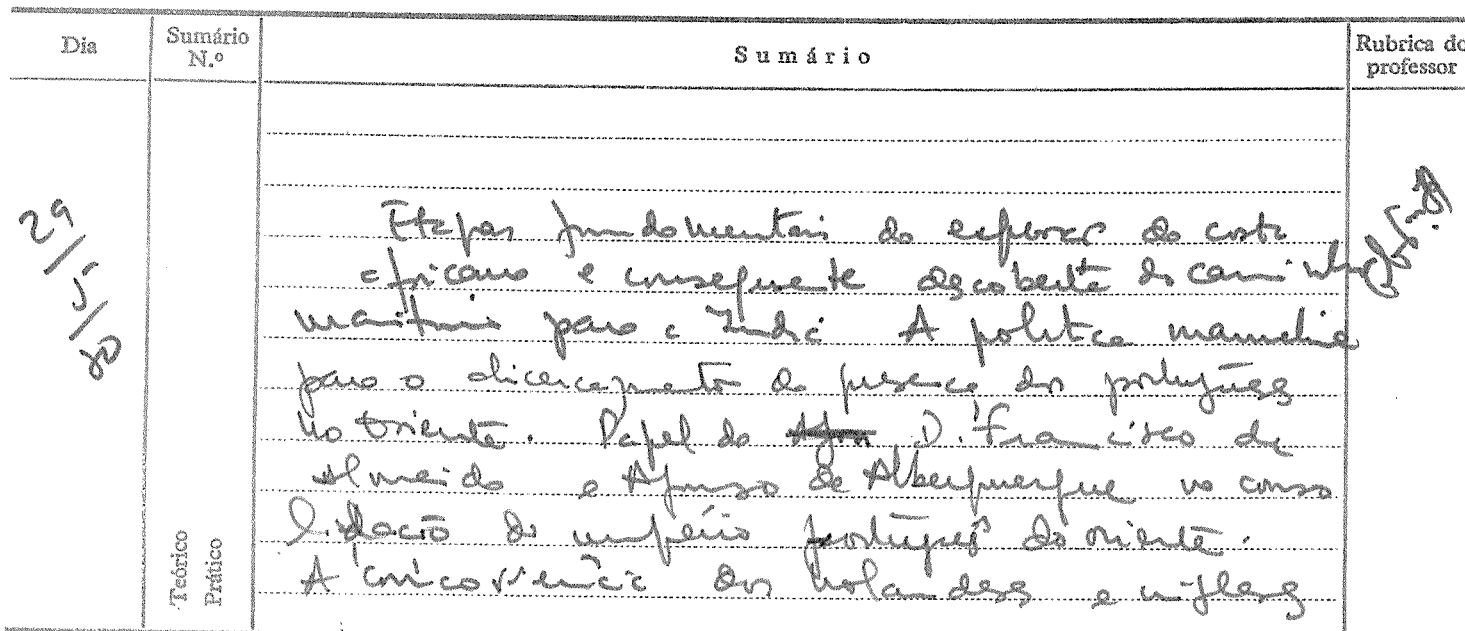 Dia
Sumário N.º
Sumário
Rubrica do professor
29/5/80
Etapas fundamentais do explorar da costa
africana e consequente descoberta do caminho
maritimo para a India A politica manuelina
para o alicerçamento da presença dos portugueses
no Oriente. Papel de D. Francisco de
Almeida e Afonso de Alberquerque na conso
lidação do império português do oriente.
A concorrência dos holandeses e ingleses
Teórico
Prático